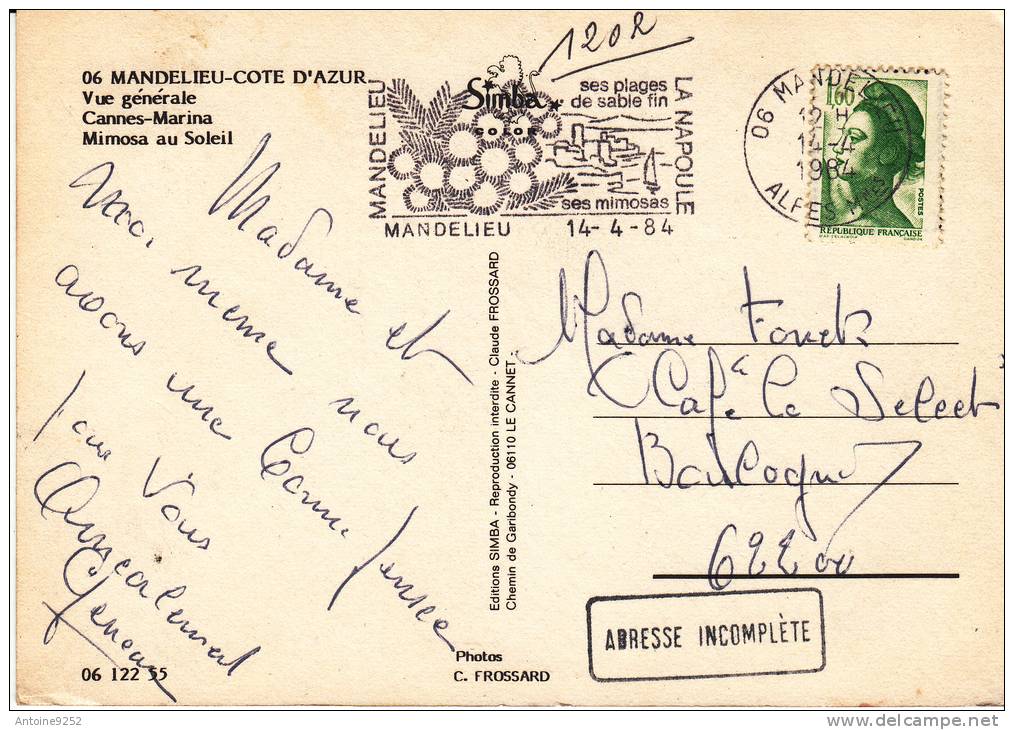 06 MANDELIEU-COTE D'AZUR
Vue générale
Cannes-Marina
Mimosa au Soleil
1202
MANDELIEU
Simba
COLOR
ses plages
de sable fin
LA NAPOULE
ses mimosas
MANDELIEU 14-4-84
06 MANDELIEU
12 H
14-4
1984
ALPES-MMES
1,60
POSTES
REPUBLIQUE FRANÇAISE
Madame et
moi meme nous
avons une bonne pensée
pour Vous
Amicalement
Madame Fouck
Café le Select
Boulogne
62200
ADRESSE INCOMPLÈTE
Editions SIMBA - Reproduction interdite - Claude FROSSARD
Chemin de Garibondy - 06110 LE CANNET
Photos
C. FROSSARD
06 122 55
Antoine9252
www.delcampe.net